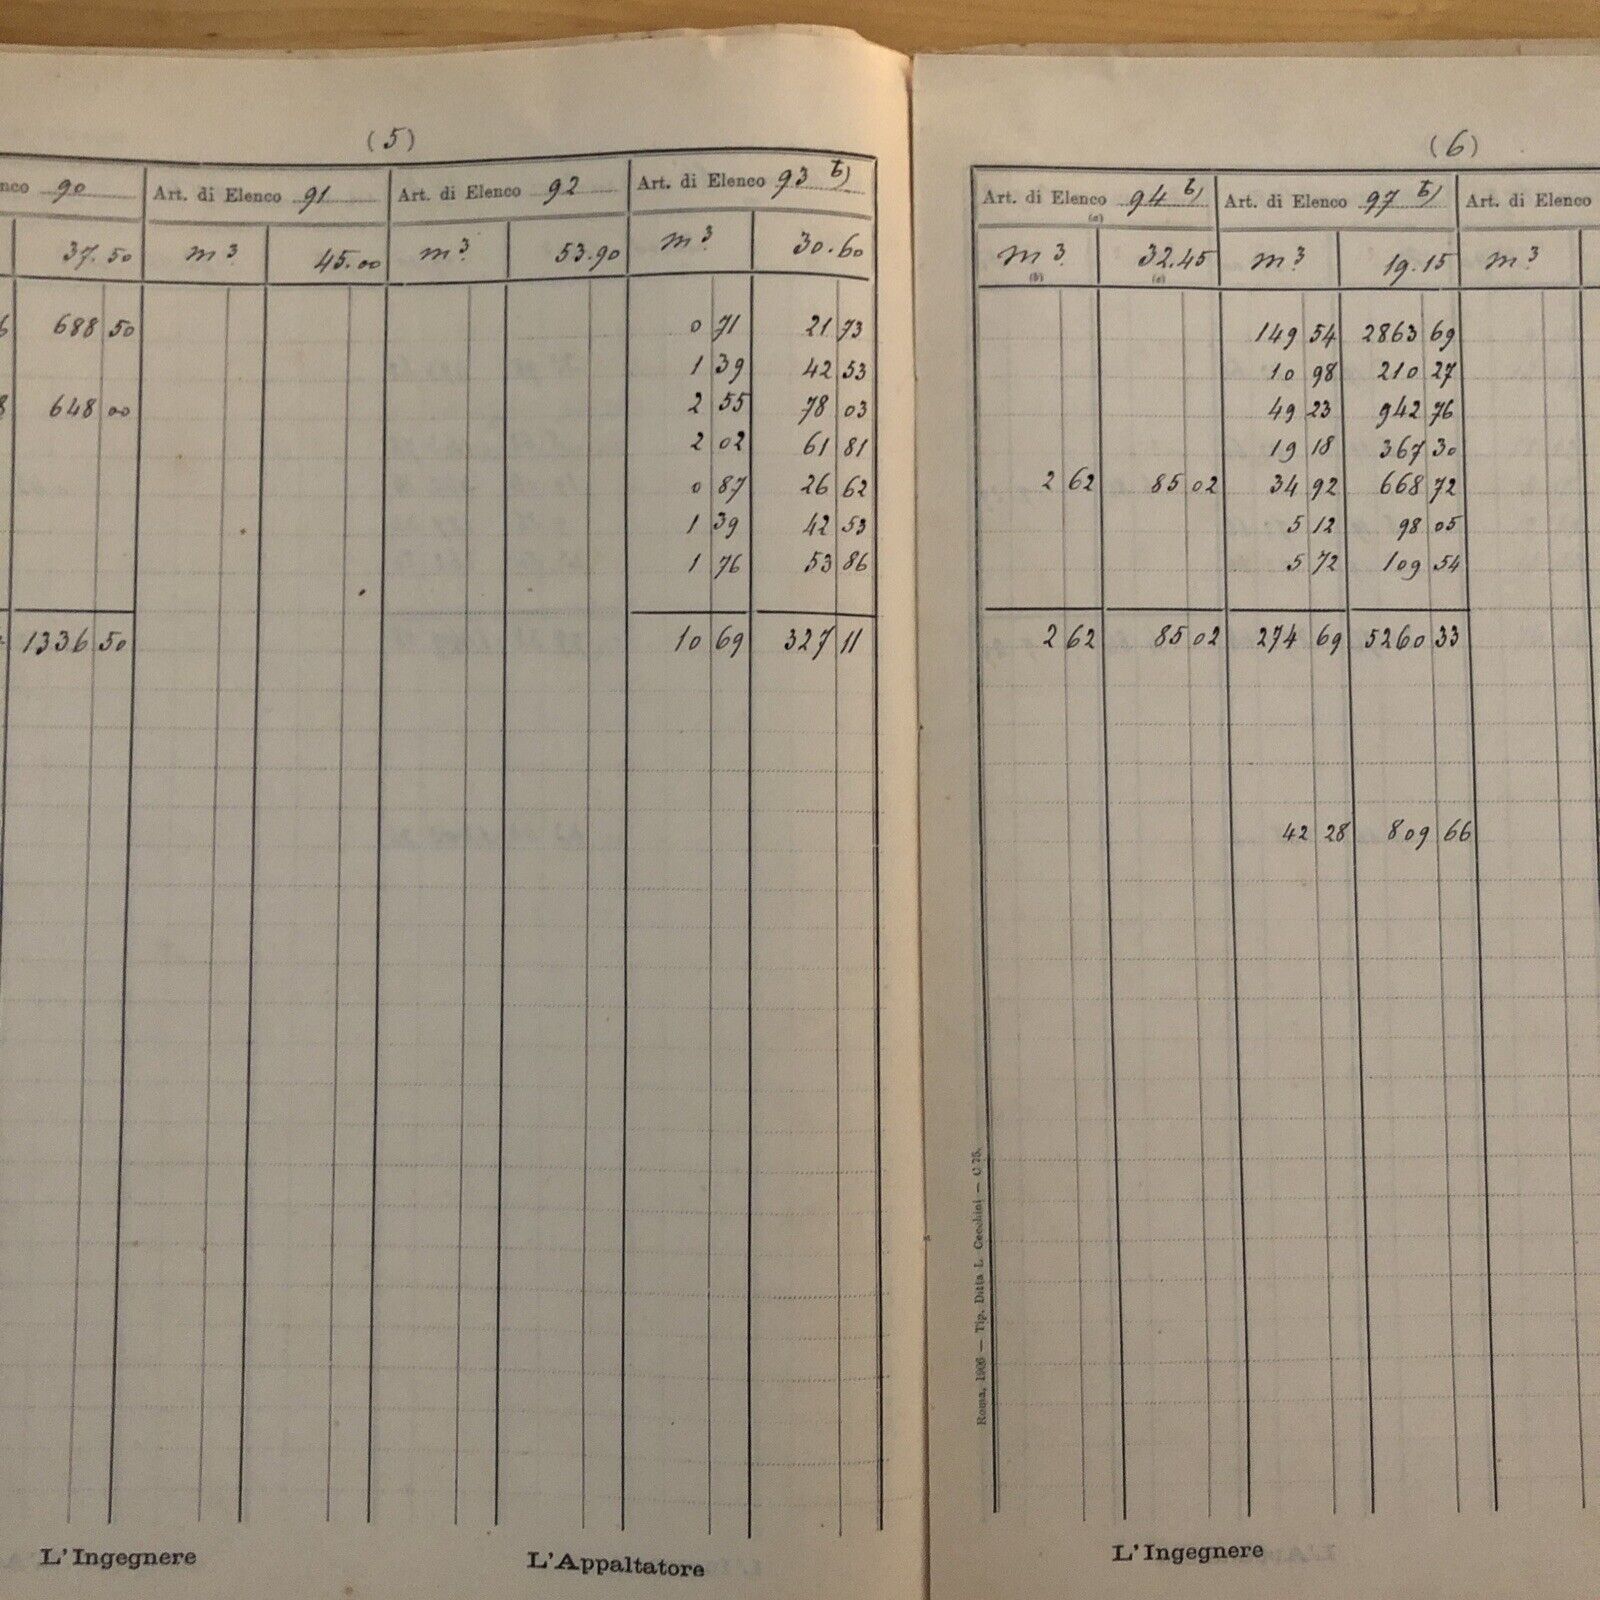 (5)
90
Art. di Elenco 91
Art. di Elenco 92
Art. di Elenco 93 b)
37.50
m³
45.00
m³
53.90
m³
30.60
688 50
0 71
21 73
1 39
42 53
648 00
2 55
78 03
2 02
61 81
0 87
26 62
1 39
42 53
1 76
53 86
1336 50
10 69
327 11
L'Ingegnere
L'Appaltatore
(6)
Art. di Elenco 94 b)
Art. di Elenco 97 b)
Art. di Elenco
(a)
m³
32.45
m³
19.15
m³
(b)
149 54
2863 69
10 98
210 27
49 23
942 76
19 18
367 30
2 62
85 02
34 92
668 72
5 12
98 05
5 72
109 54
2 62
85 02
274 69
5260 33
42 28
809 66
Roma, 1906 — Tip. Ditta L. Cecchini — C 75.
L'Ingegnere